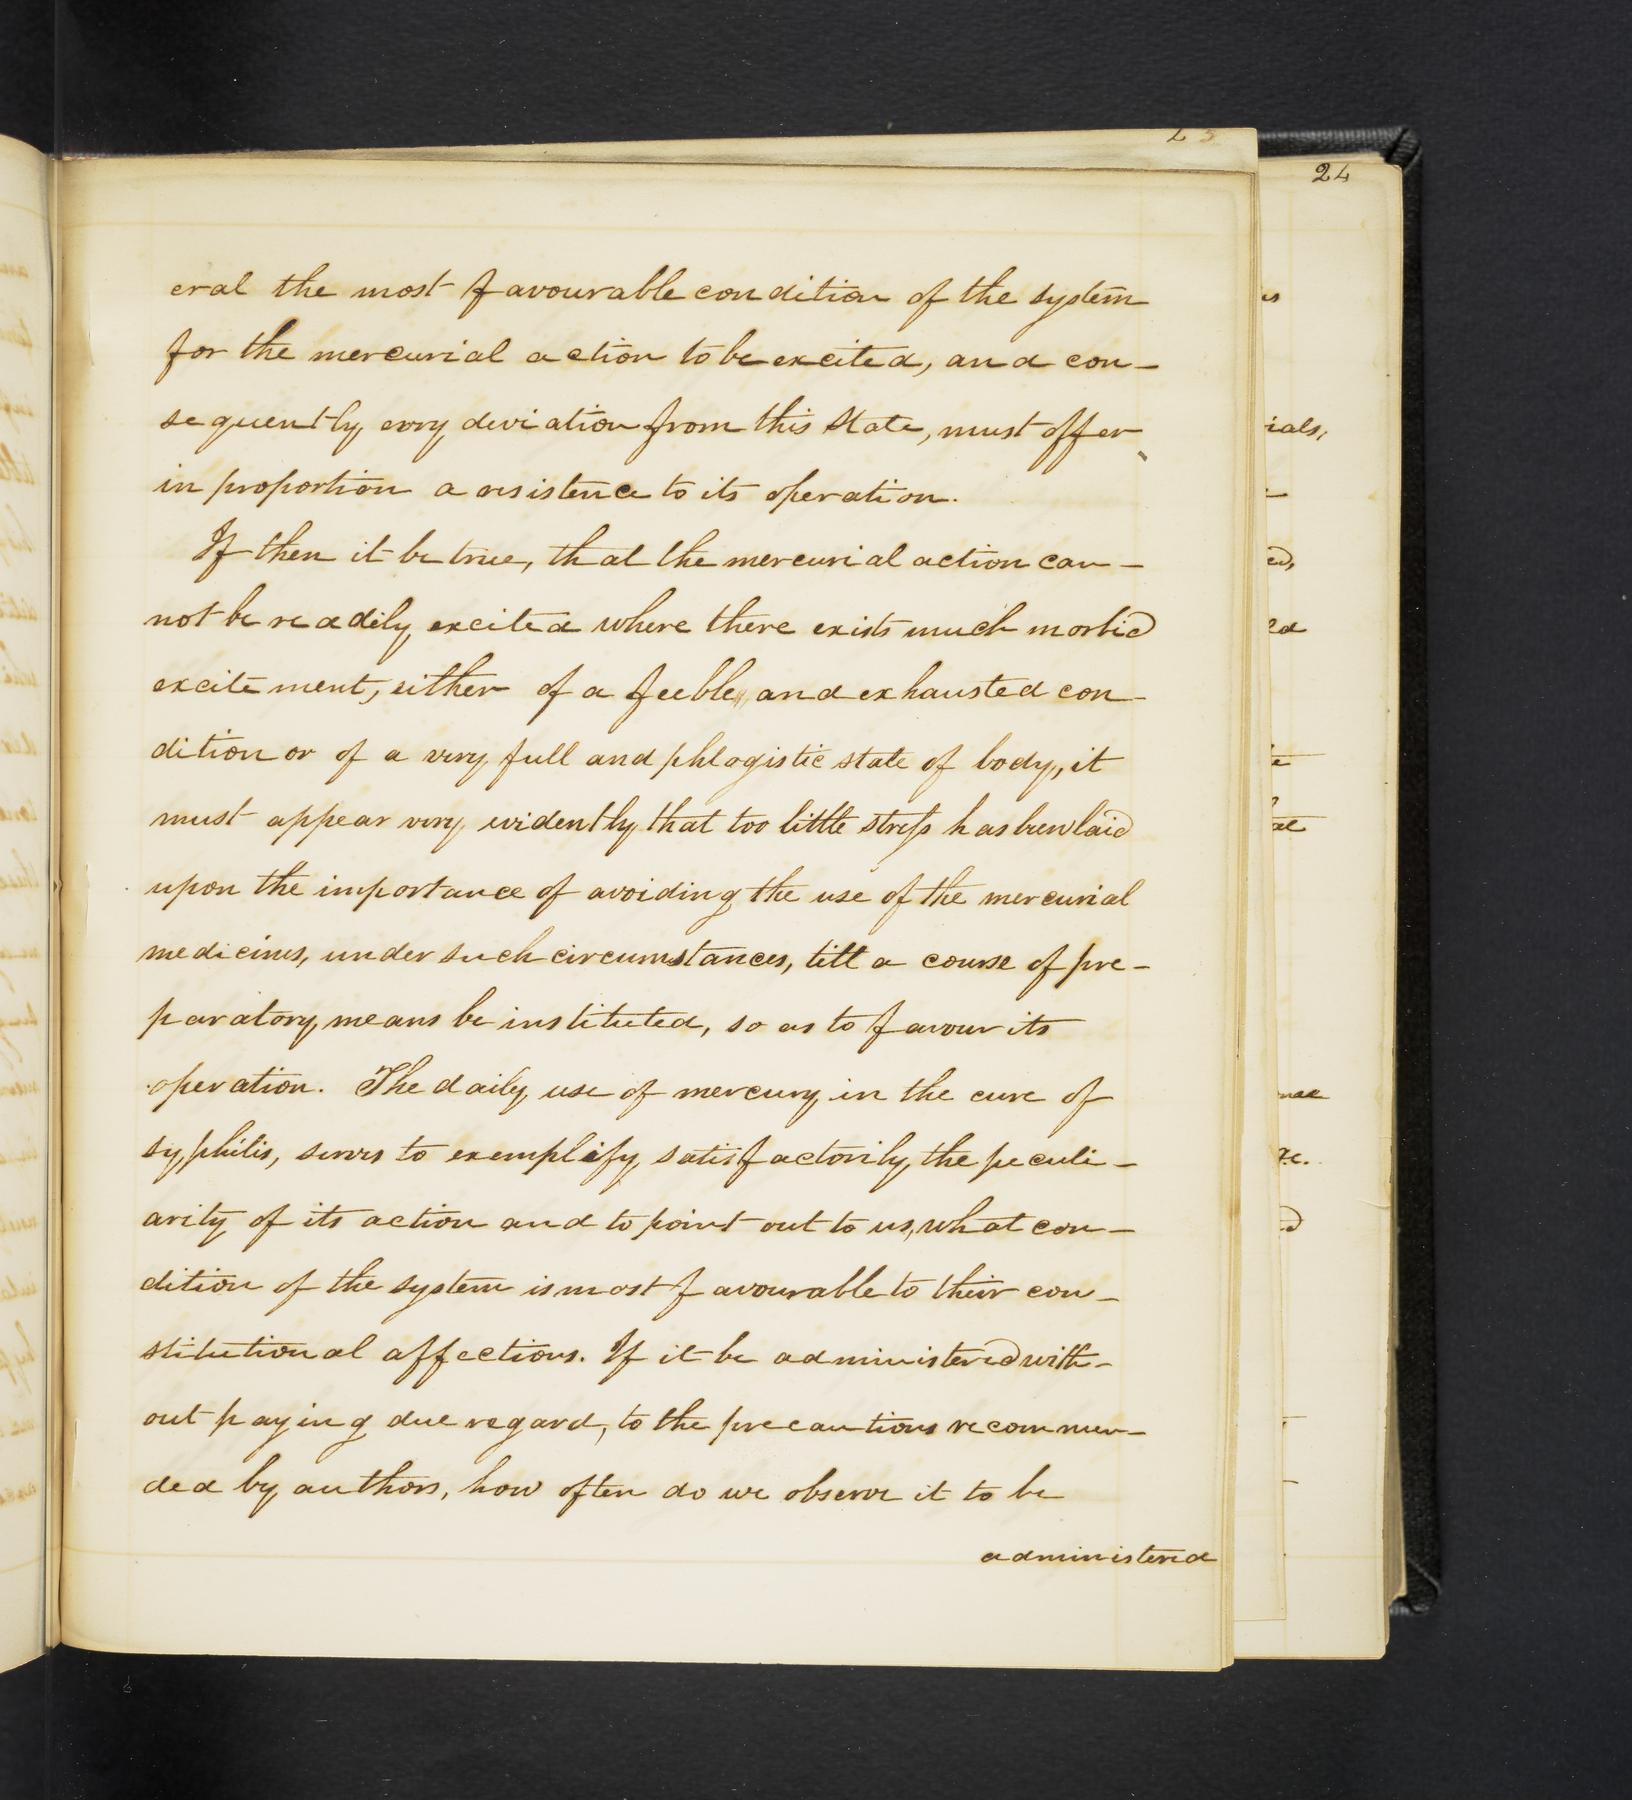 23
24
eral the most favourable condition of the system
for the mercurial action to be excited, and con-
sequently evry deviation from this state, must offer
in proportion a resistence to its operation.
If then it be true, that the mercurial action can-
not be readily excited where there exists much morbid
excitement, either of a feeble, and exhausted con-
dition or of a very full and phlogistic state of body, it
must appear very evidently that too little stress has been laid
upon the importance of avoiding the use of the mercurial
medicines, under such circumstances, till a course of pre-
paratory means be instituted, so as to favour its
operation. The daily use of mercury in the cure of
syphilis, serves to exemplify satisfactorily the peculi-
arity of its action and to point out to us, what con-
dition of the system is most favourable to their con-
stitutional affections. If it be administered with-
out paying due regard, to the precautions recommen-
ded by authors, how often do we observe it to be
administered